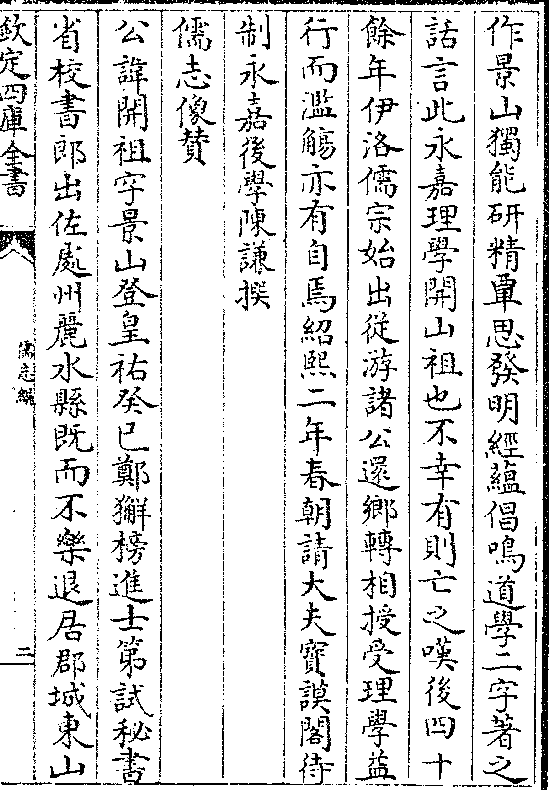 作景山獨能研精覃思發明經蘊倡鳴道學二字著之
話言此永嘉理學開山祖也不幸有則亡之嘆後四十
餘年伊洛儒宗始出從游諸公還鄉轉相授受理學益
行而濫觴亦有自焉紹熙二年春朝請大夫寶謨閣待
制永嘉後學陳謙撰
儒志像贊
公諱開祖字景山登皇祐癸巳鄭獬榜進士第試秘書
省校書郎出佐處州麗水縣既而不樂退居郡城東山
欽定四庫全書
儒志編
二